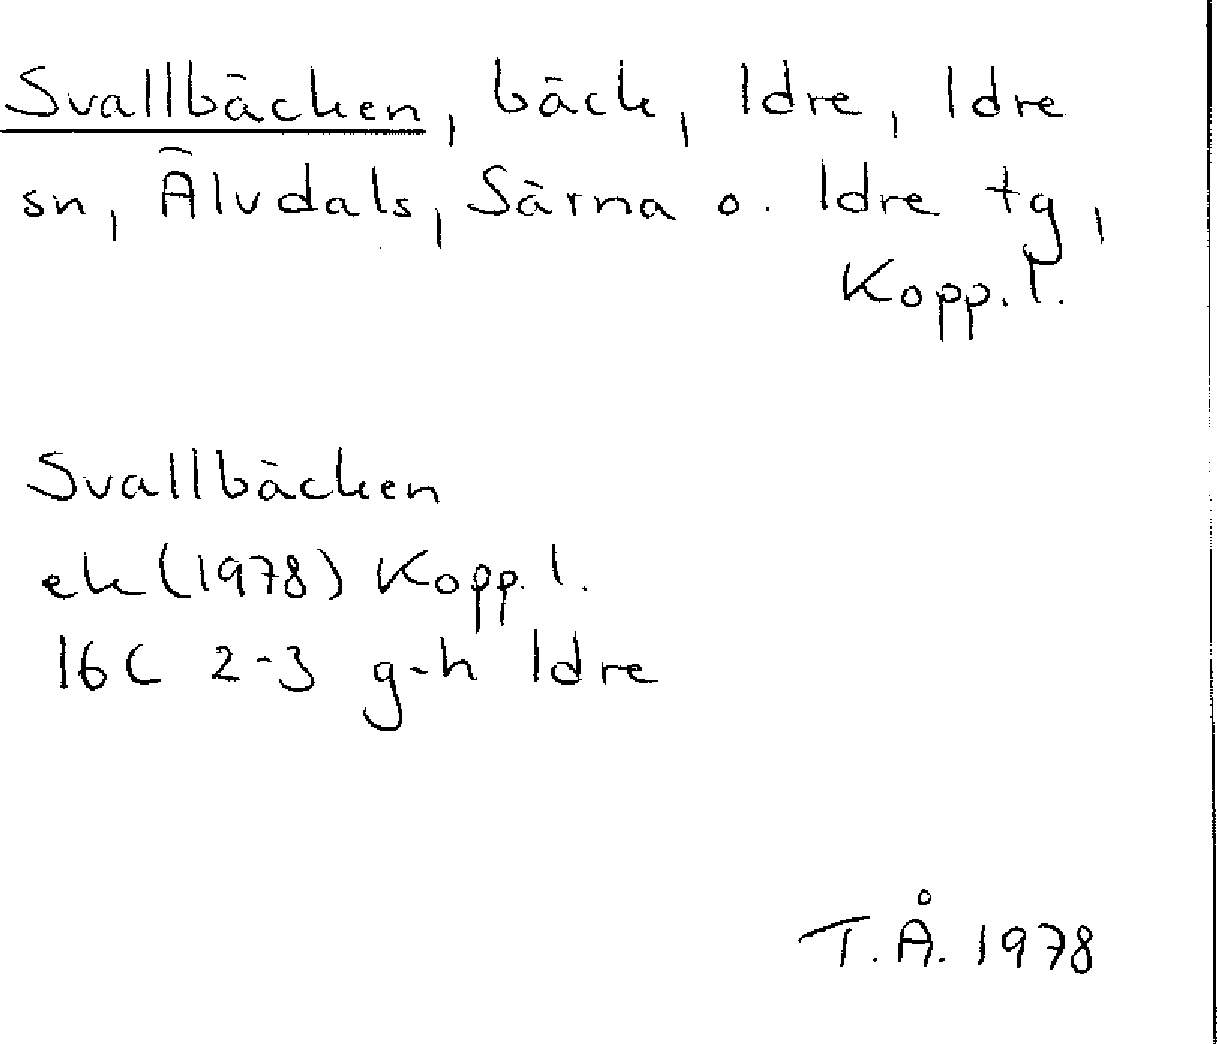 Svallbäcken, bäck, Idre, Idre
sn, Älvdals, Särna o. Idre tg,
Kopp. l.
Svallbäcken
ek (1978) Kopp. l.
16C 2-3 g-h Idre
T.Å. 1978